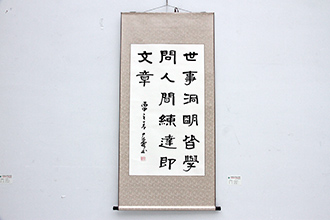 世事洞明皆學
問人間練達即
文章